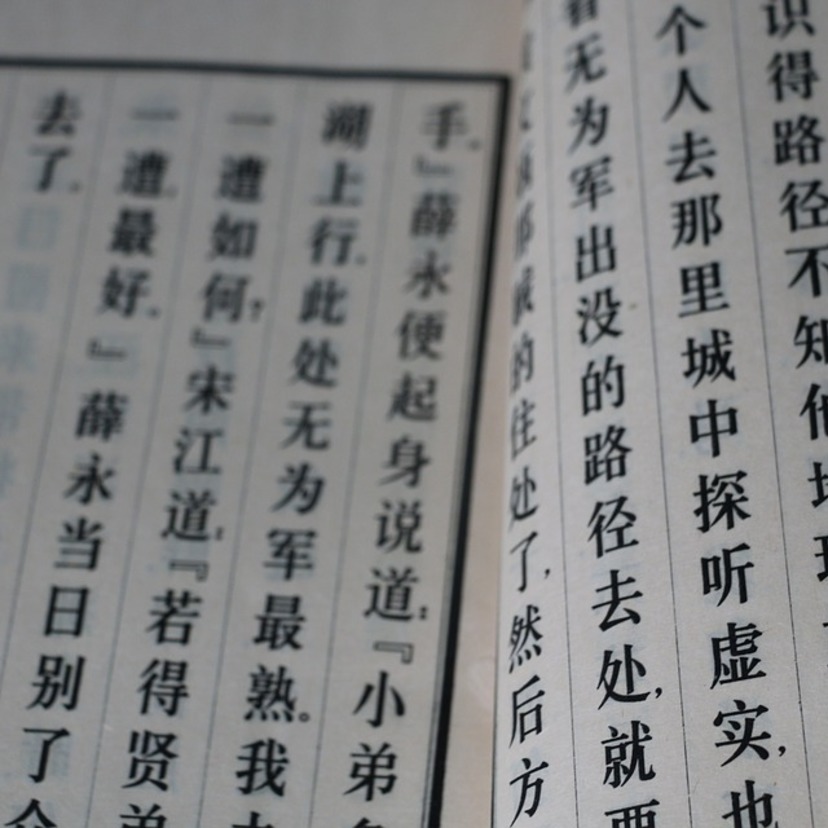 识得路径不知他地
个人去那里城中探听虚实,也
看无为军出没的路径去处,就要
那贼的住处了,然后方
手。』薛永便起身说道:『小弟
湖上行。此处无为军最熟。我
一遭如何?』宋江道:『若得贤弟
一遭最好。』薛永当日别了众
去了。